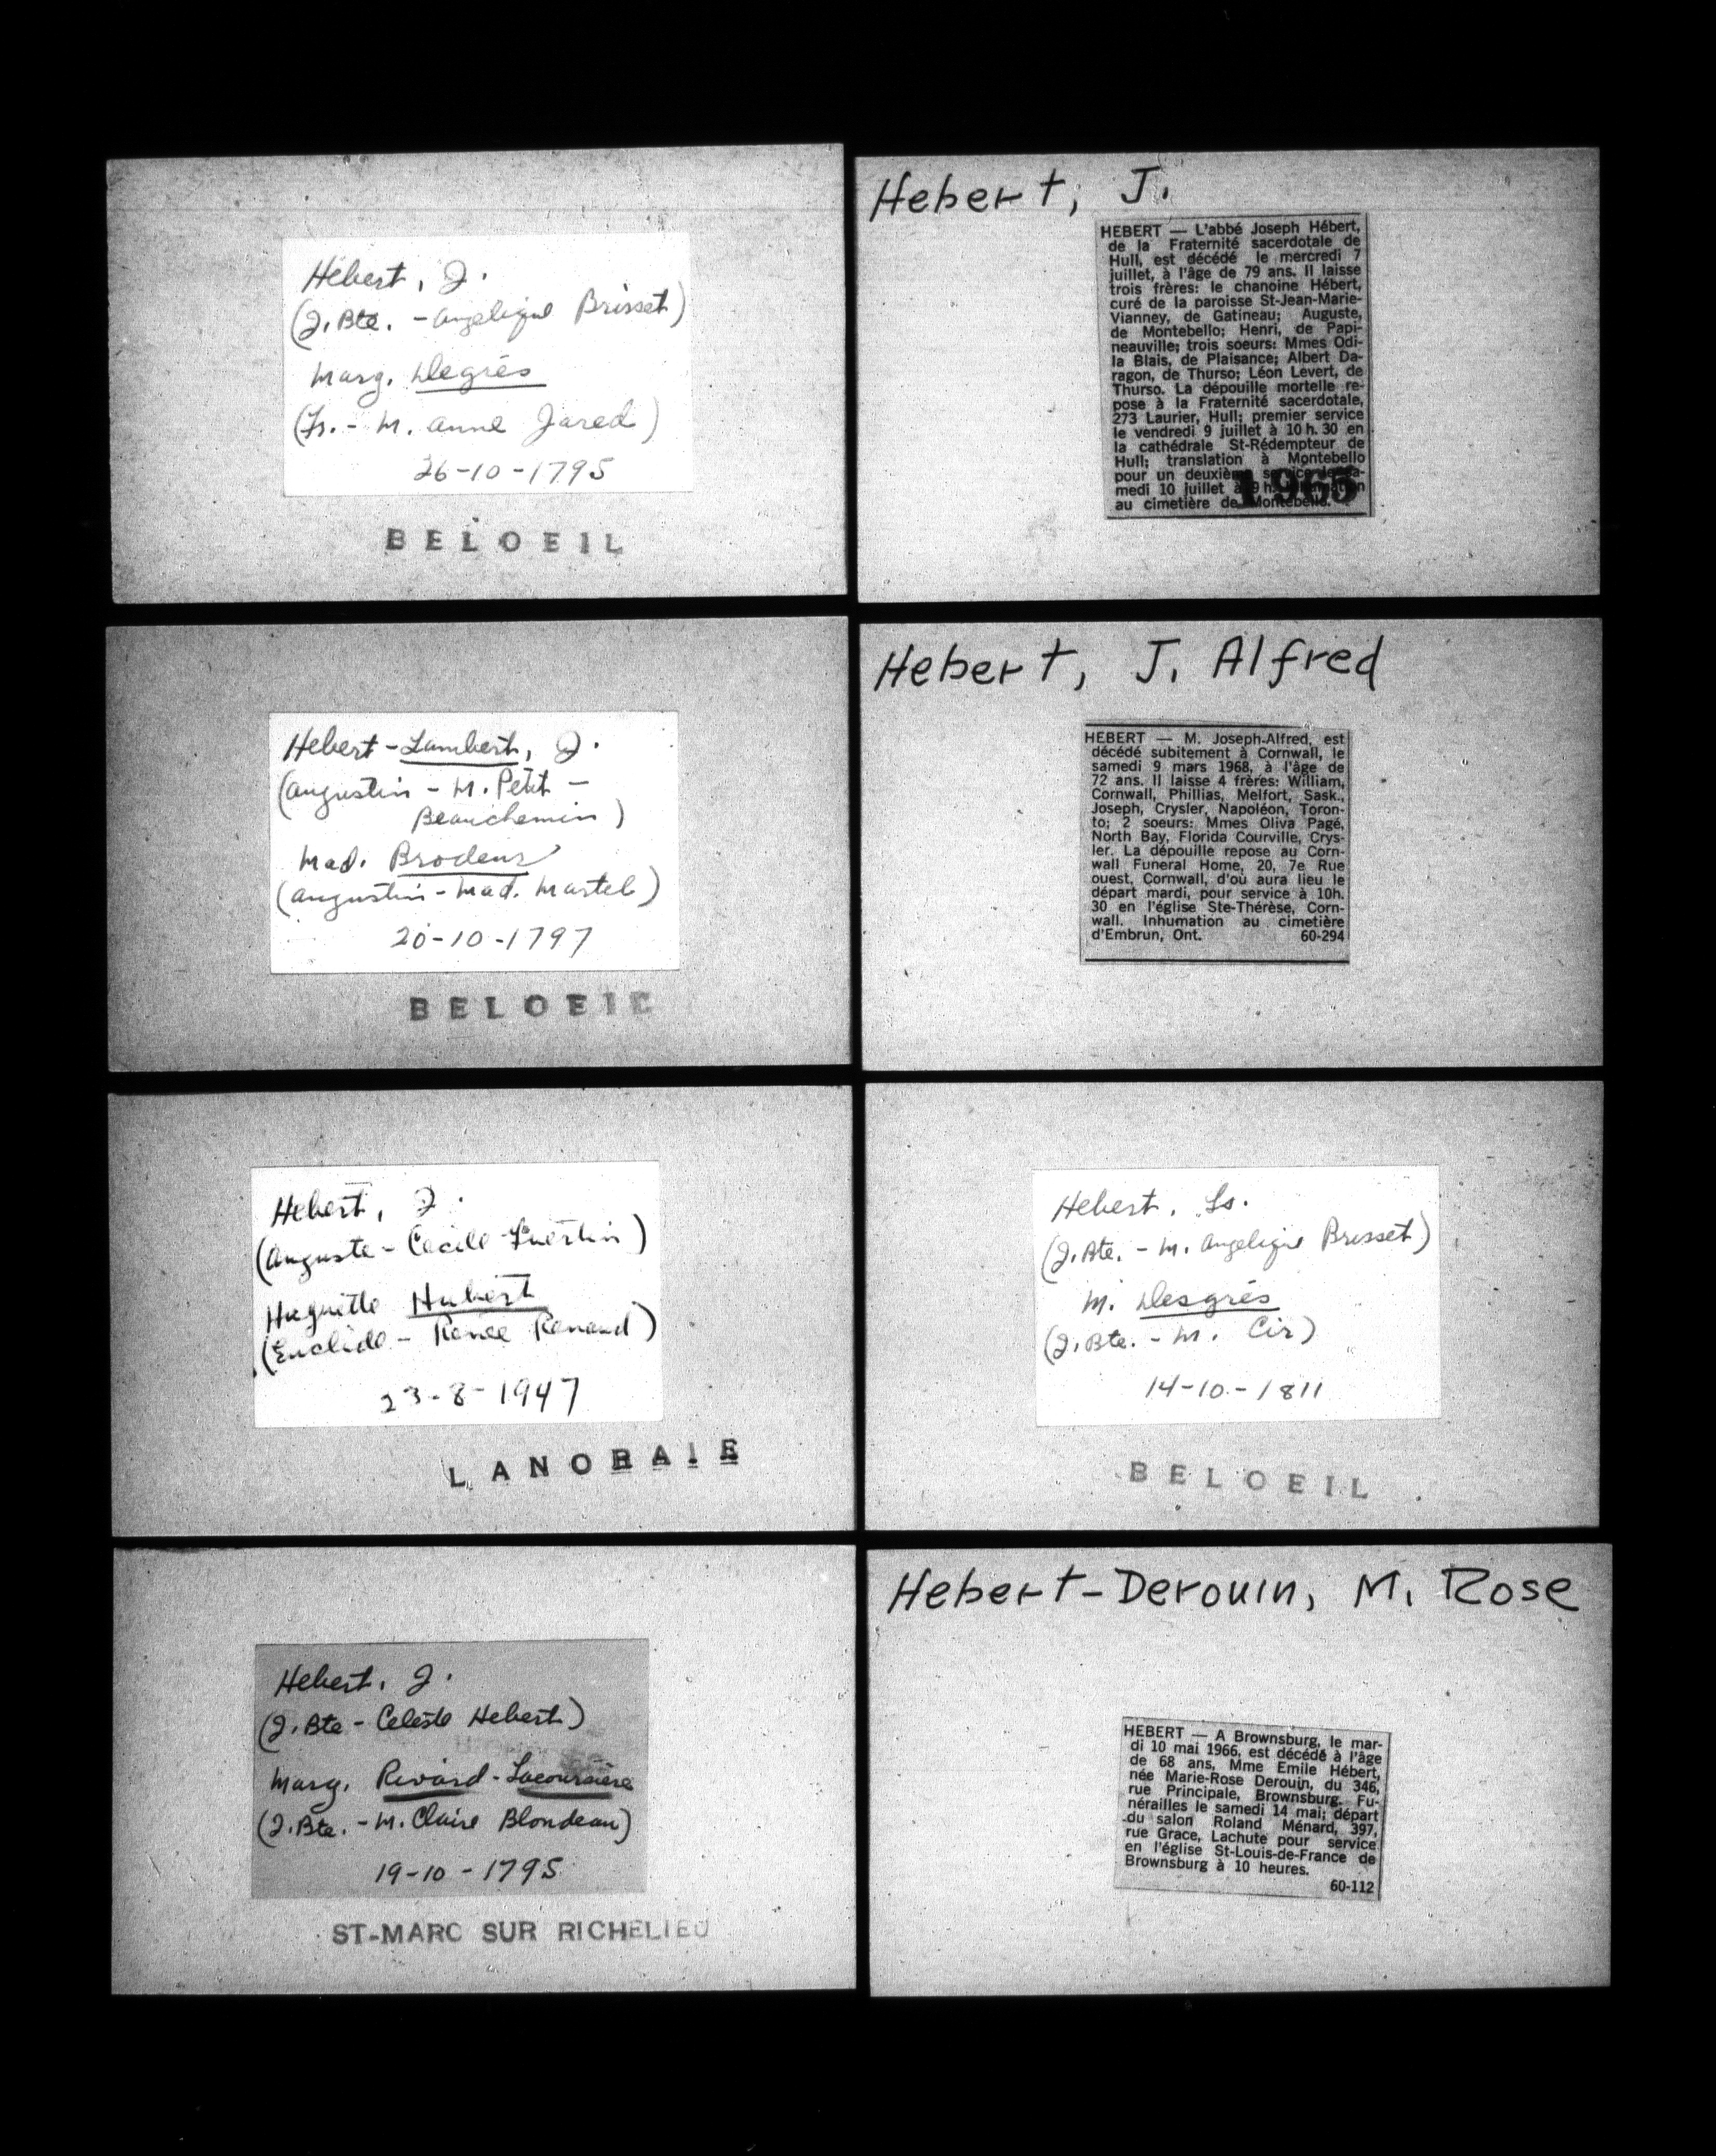 Hébert, J.
(J. Bte. - Angelique Brisset)
Marg. Degrés
(Fs. - M. Anne Jared)
26-10-1795
BELOEIL
Hebert-Lambert, J.
(Augustin - M. Petit -
Beauchemin)
Mad. Brodeur
(Augustin - Mad. Martel)
20-10-1797
BELOEIL
Hebert, J.
(Auguste - Cecile Guertin)
Huguette Hubert
(Euclide - Renée Renaud)
23-8-1947
LANORAIE
Hebert, J.
(J. Bte - Celeste Hebert)
Marg. Rivard-Lacoursière
(J. Bte. - M. Claire Blondeau)
19-10-1795
ST-MARC SUR RICHELIEU
Hebert, J.
HEBERT — L'abbé Joseph Hébert,
de la Fraternité sacerdotale de
Hull, est décédé le mercredi 7
juillet, à l'âge de 79 ans. Il laisse
trois frères: le chanoine Hébert,
curé de la paroisse St-Jean-Marie-
Vianney, de Gatineau; Auguste,
de Montebello; Henri, de Papi-
neauville; trois soeurs: Mmes Odi-
la Blais, de Plaisance; Albert Da-
ragon, de Thurso; Léon Levert, de
Thurso. La dépouille mortelle re-
pose à la Fraternité sacerdotale,
273 Laurier, Hull; premier service
le vendredi 9 juillet à 10 h. 30 en
la cathédrale St-Rédempteur de
Hull; translation à Montebello
pour un deuxième service le sa-
medi 10 juillet à 9 h. Inhumation
au cimetière de Montebello.
1965
Hebert, J. Alfred
HEBERT — M. Joseph-Alfred, est
décédé subitement à Cornwall, le
samedi 9 mars 1968, à l'âge de
72 ans. Il laisse 4 frères: William,
Cornwall, Phillias, Melfort, Sask.,
Joseph, Crysler, Napoléon, Toron-
to; 2 soeurs: Mmes Oliva Pagé,
North Bay, Florida Courville, Crys-
ler. La dépouille repose au Corn-
wall Funeral Home, 20, 7e Rue
ouest, Cornwall, d'où aura lieu le
départ mardi, pour service à 10h.
30 en l'église Ste-Thérèse, Corn-
wall. Inhumation au cimetière
d'Embrun, Ont. 60-294
Hebert, Ls.
(J. Bte. - M. Angelique Brisset)
M. Desgrés
(J. Bte. - M. Cir)
14-10-1811
BELOEIL
Hebert-Derouin, M. Rose
HEBERT — A Brownsburg, le mar-
di 10 mai 1966, est décédé à l'âge
de 68 ans, Mme Emile Hébert,
née Marie-Rose Derouin, du 346,
rue Principale, Brownsburg. Fu-
nérailles le samedi 14 mai; départ
du salon Roland Ménard, 397,
rue Grace, Lachute pour service
en l'église St-Louis-de-France de
Brownsburg à 10 heures.
60-112